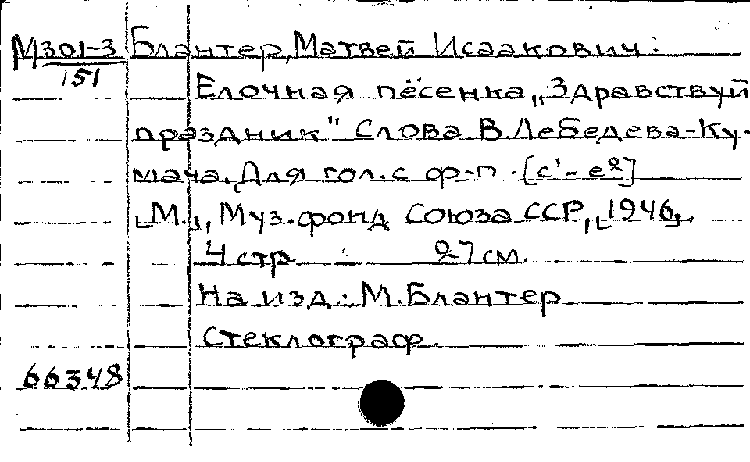 М301-3 Блантер, Матвей Исаакович:
151
Елочная пёсенка „Здравствуй
праздник" Слова В.Лебедева-Ку-
мача. Для гол. с ф-п. [c¹-e²]
[М.], Муз.фонд Союза ССР, [1946].
4 стр. 27 см.
На изд.: М.Блантер
Стеклограф.
66348